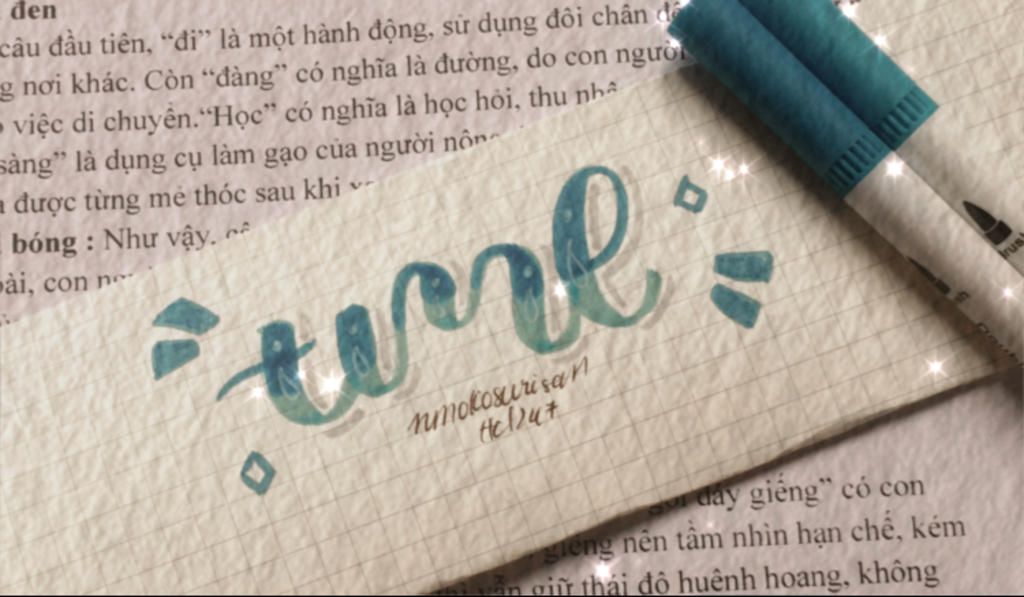 đen
câu đầu tiên, “đi” là một hành động, sử dụng đôi chân
nơi khác. Còn “đàng” có nghĩa là đường, do con người
việc di chuyển.“Học” có nghĩa là học hỏi, thu
sàng” là dụng cụ làm gạo của người
được từng mẻ thóc sau khi
bóng : Như vậy,
con
time
nmokosurisan
đáy giếng” có con
giếng nên tầm nhìn hạn chế, kém
vẫn giữ thái độ huênh hoang, không